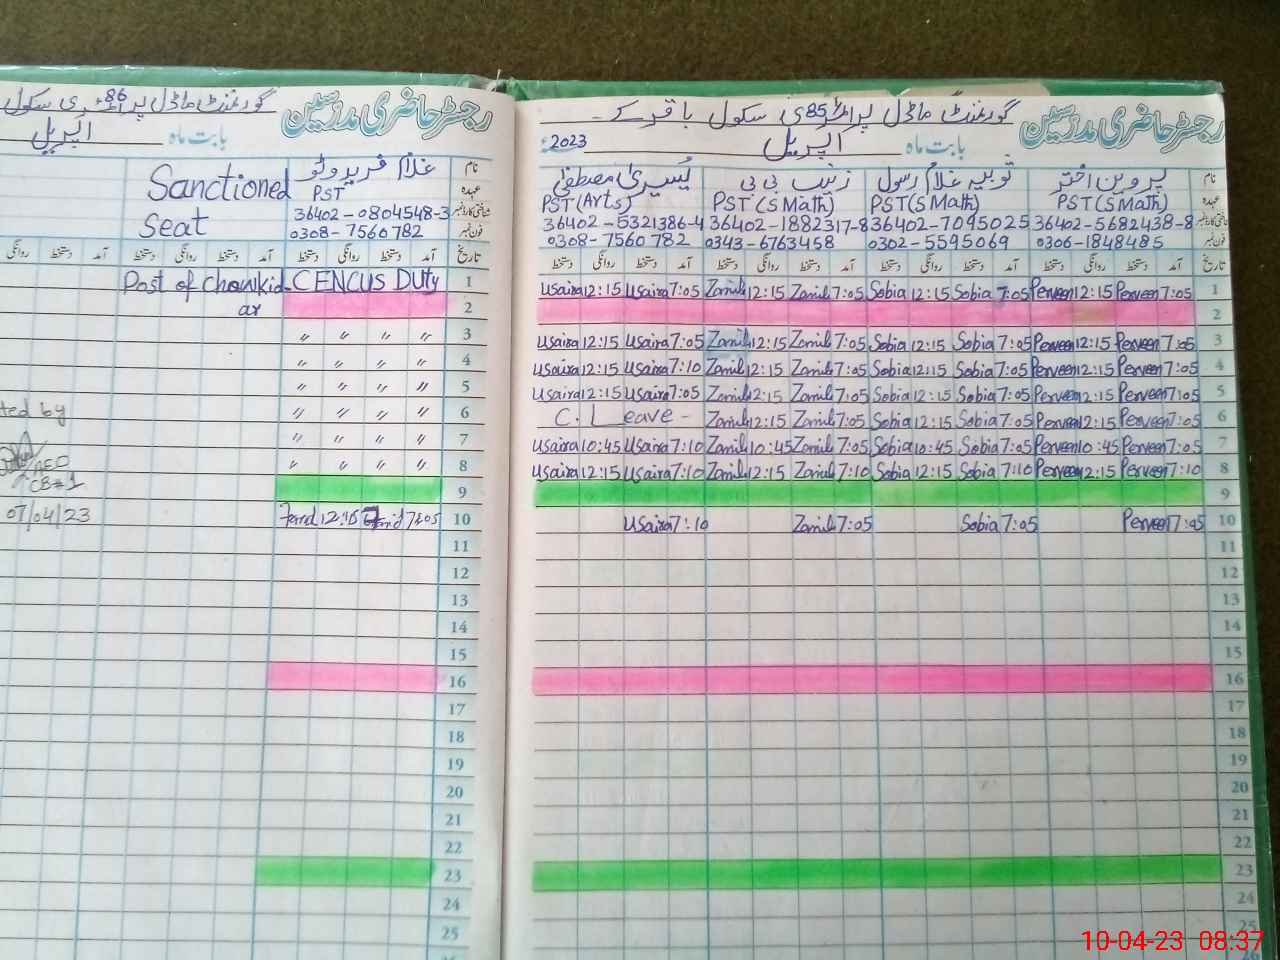 رجسٹر حاضری مدرسین گورنمنٹ ماڈل پرائمری سکول باقر کے 85
بابت ماہ اپریل 2023ء
نام پروین اختر ثوبیہ غلام رسول زینب بی بی یسریٰ مصطفیٰ
عہدہ PST (S Math) PST (S Math) PST (S Math) PST (Arts)
شناختی کارڈ نمبر 36402-5682438-8 36402-7095025 36402-1882317-8 36402-5321386-4
فون نمبر 0306-1848485 0302-5595069 0343-6763458 0308-7560782
تاریخ آمد دستخط روانگی دستخط آمد دستخط روانگی دستخط آمد دستخط روانگی دستخط آمد دستخط روانگی دستخط
Usaira 12:15 Usaira 7:05 Zainib 12:15 Zainib 7:05 Sobia 12:15 Sobia 7:05 Perveen 12:15 Perveen 7:05 1
2
Usaira 12:15 Usaira 7:05 Zainib 12:15 Zainib 7:05 Sobia 12:15 Sobia 7:05 Perveen 12:15 Perveen 7:05 3
Usaira 12:15 Usaira 7:10 Zainib 12:15 Zainib 7:05 Sobia 12:15 Sobia 7:05 Perveen 12:15 Perveen 7:05 4
Usaira 12:15 Usaira 7:05 Zainib 12:15 Zainib 7:05 Sobia 12:15 Sobia 7:05 Perveen 12:15 Perveen 7:05 5
C. Leave - Zainib 12:15 Zainib 7:05 Sobia 12:15 Sobia 7:05 Perveen 12:15 Perveen 7:05 6
Usaira 10:45 Usaira 7:10 Zainib 10:45 Zainib 7:05 Sobia 10:45 Sobia 7:05 Perveen 10:45 Perveen 7:05 7
Usaira 12:15 Usaira 7:10 Zainib 12:15 Zainib 7:10 Sobia 12:15 Sobia 7:10 Perveen 12:15 Perveen 7:10 8
9
Usaira 7:10 Zainib 7:05 Sobia 7:05 Perveen 7:05 10
11
12
13
14
15
16
17
18
19
20
21
22
23
24
25
26
رجسٹر حاضری مدرسین گورنمنٹ ماڈل پرائمری سکول 86
بابت ماہ اپریل
نام غلام فرید وٹو
عہدہ PST
شناختی کارڈ نمبر 36402-0804548-3
فون نمبر 0308-7560782
Sanctioned
Seat
تاریخ آمد دستخط روانگی دستخط آمد دستخط روانگی دستخط آمد دستخط روانگی
Post of Chowkid- CENCUS Duty 1
ar 2
" " " " 3
" " " " 4
" " " " 5
ted by " " " " 6
" " " " 7
AEO " " " " 8
CB#1 9
07/04/23 Farid 12:15 Farid 7:05 10
11
12
13
14
15
16
17
18
19
20
21
22
23
24
25
10-04-23 08:37